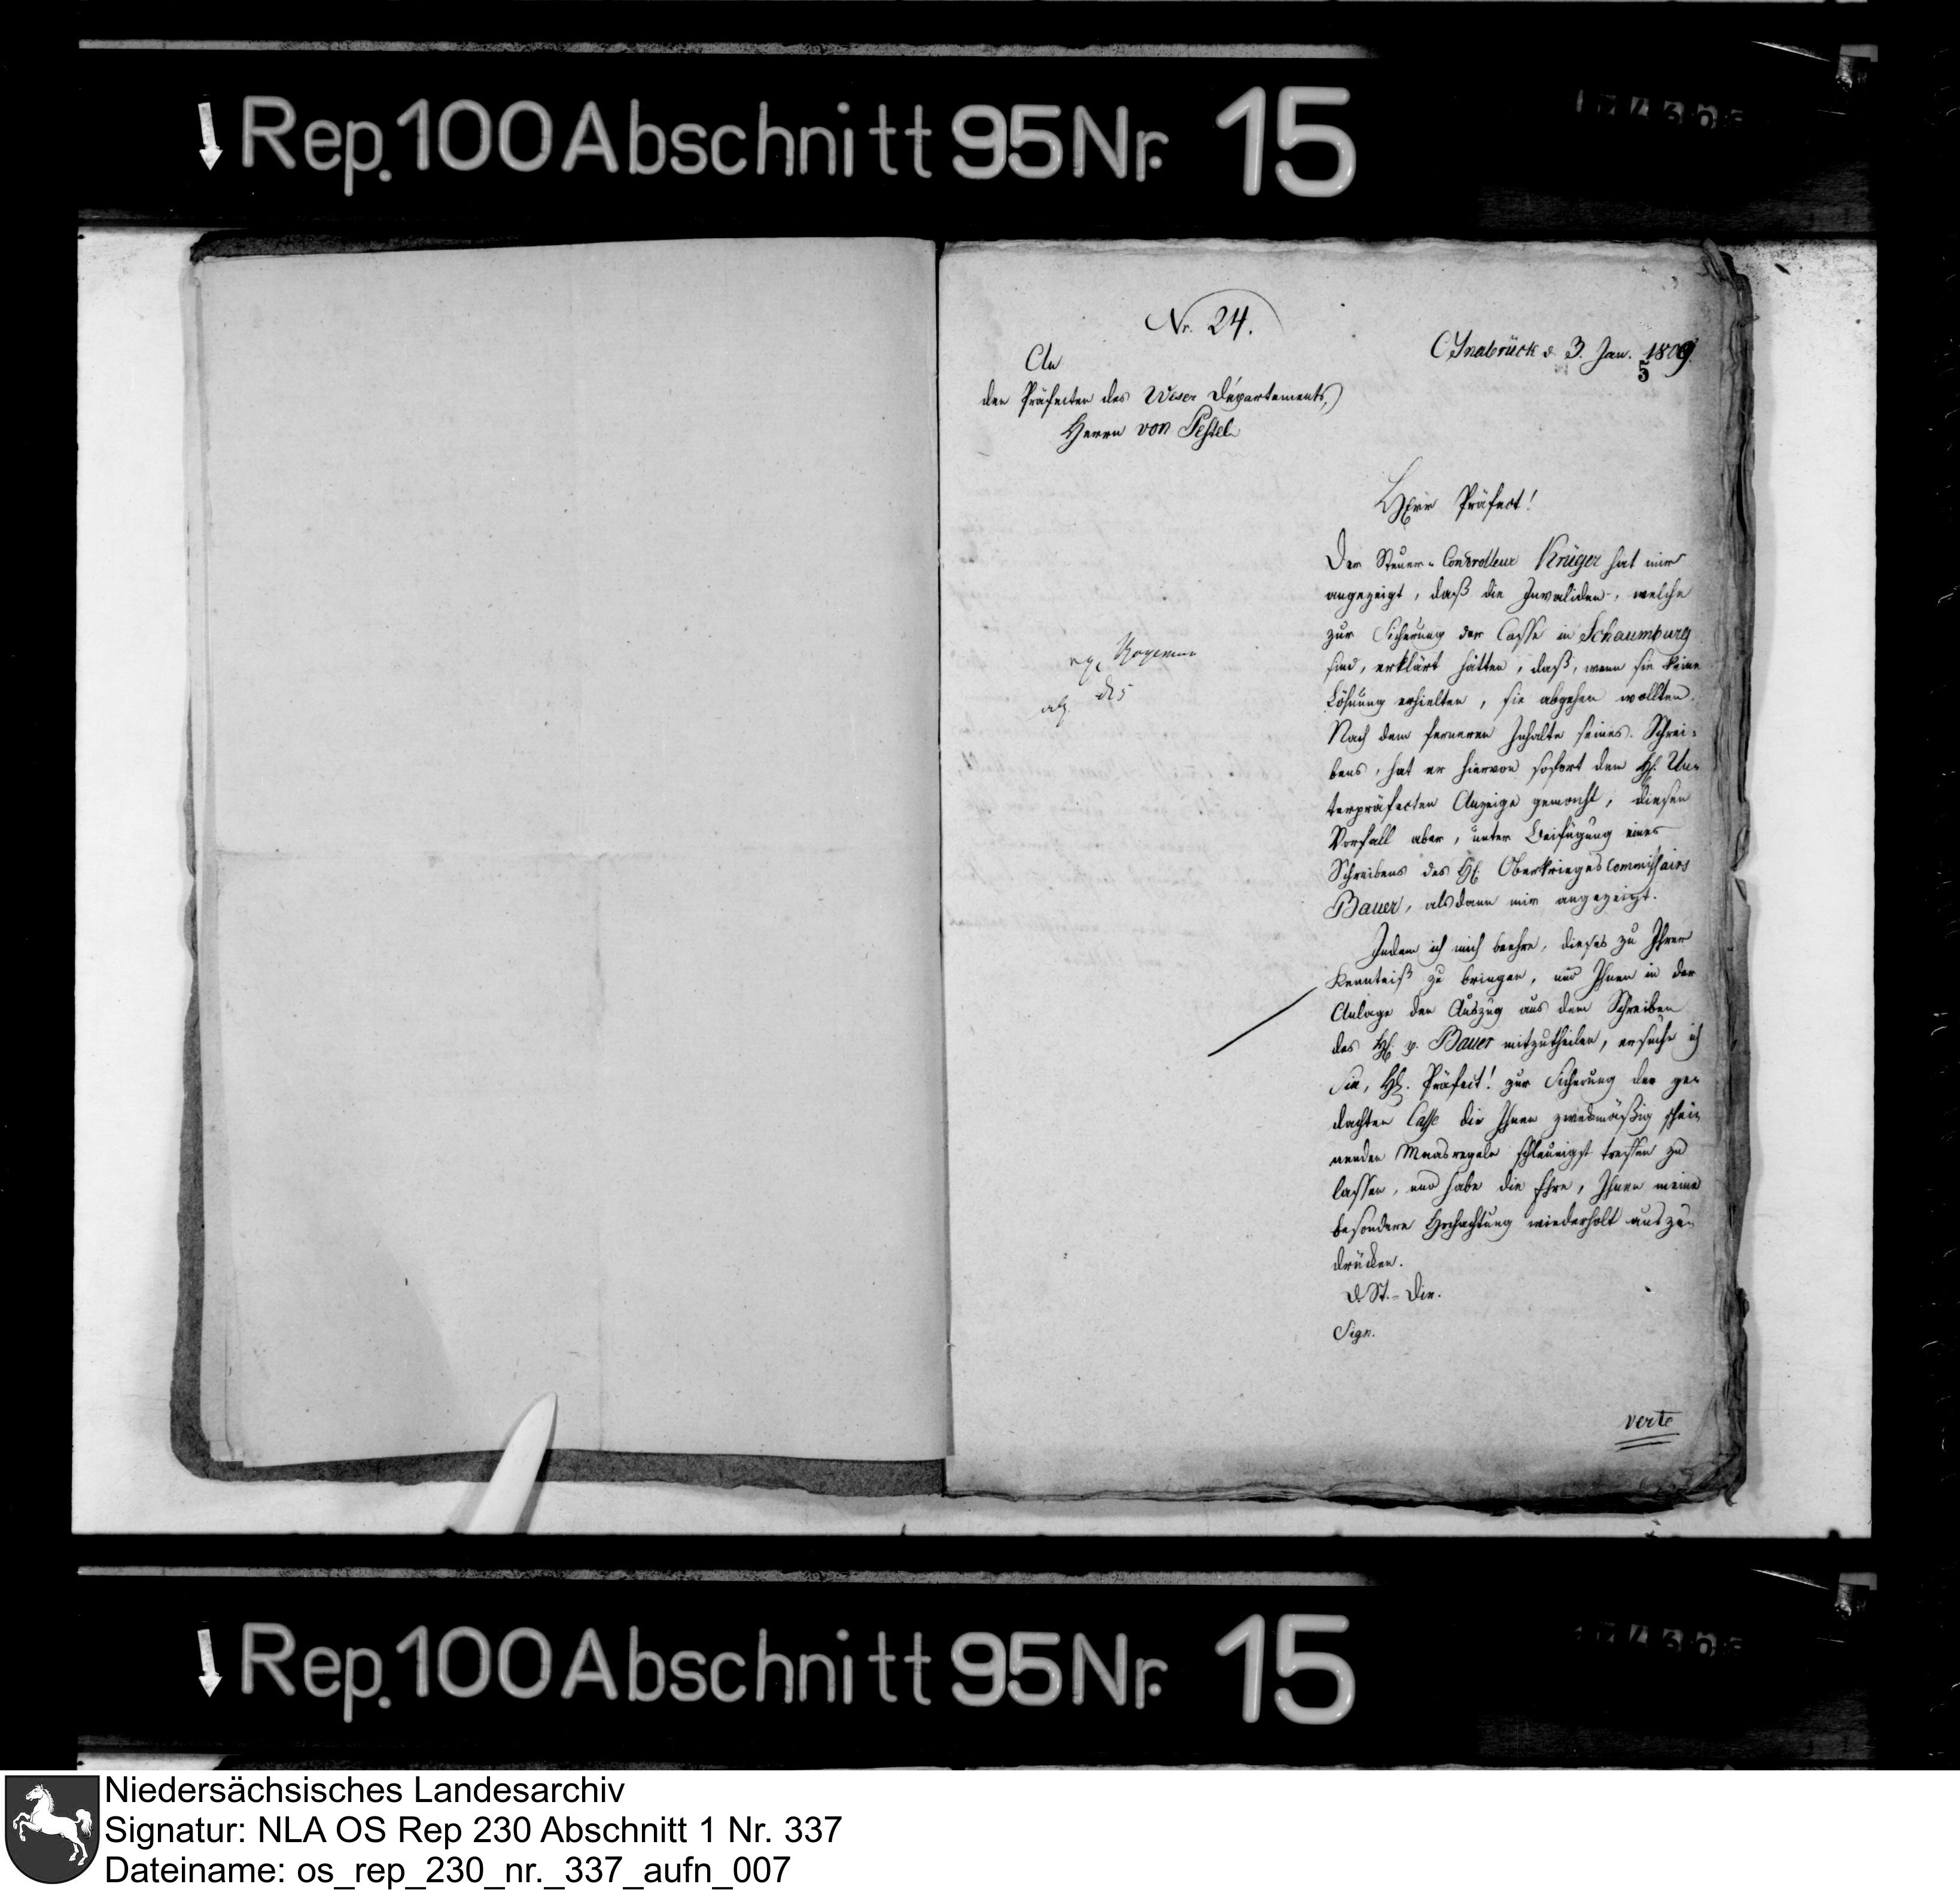 Rep. 100 Abschnitt 95 Nr. 15
Nr. 24.
Osnabrück d. 3. Jan. 1809.
5
An
den Präfecten des Weser Départements,
Herrn von Pestel
Herr Präfect!
Der Steuer-Controlleur Krüger hat mir
angezeigt, daß die Invaliden, welche
zur Sicherung der Casse in Schaumburg
sind, erklärt hätten, daß, wenn sie keine
Löhnung erhielten, sie abgehen wollten.
Nach dem ferneren Inhalte seines Schrei-
bens, hat er hiervon sofort dem H. Un-
terpräfecten Anzeige gemacht, diesen
Vorfall aber, unter Beifügung eines
Schreibens des H. Oberkriegscommissairs
Bauer, alsdann mir angezeigt.
Indem ich mich beehre, dieses zu Ihrer
Kenntniß zu bringen, und Ihnen in der
Anlage den Auszug aus dem Schreiben
des H. p. Bauer mitzutheilen, ersuche ich
Sie, H. Präfect! zur Sicherung der ge-
dachten Casse die Ihnen zweckmäßig schei-
nenden Maasregeln schleunigst treffen zu
lassen, und habe die Ehre, Ihnen meine
besondere Hochachtung wiederholt auszu-
drücken.
D. St.-Dir.
Sign.
verte
Rep. 100 Abschnitt 95 Nr. 15
Niedersächsisches Landesarchiv
Signatur: NLA OS Rep 230 Abschnitt 1 Nr. 337
Dateiname: os_rep_230_nr._337_aufn_007